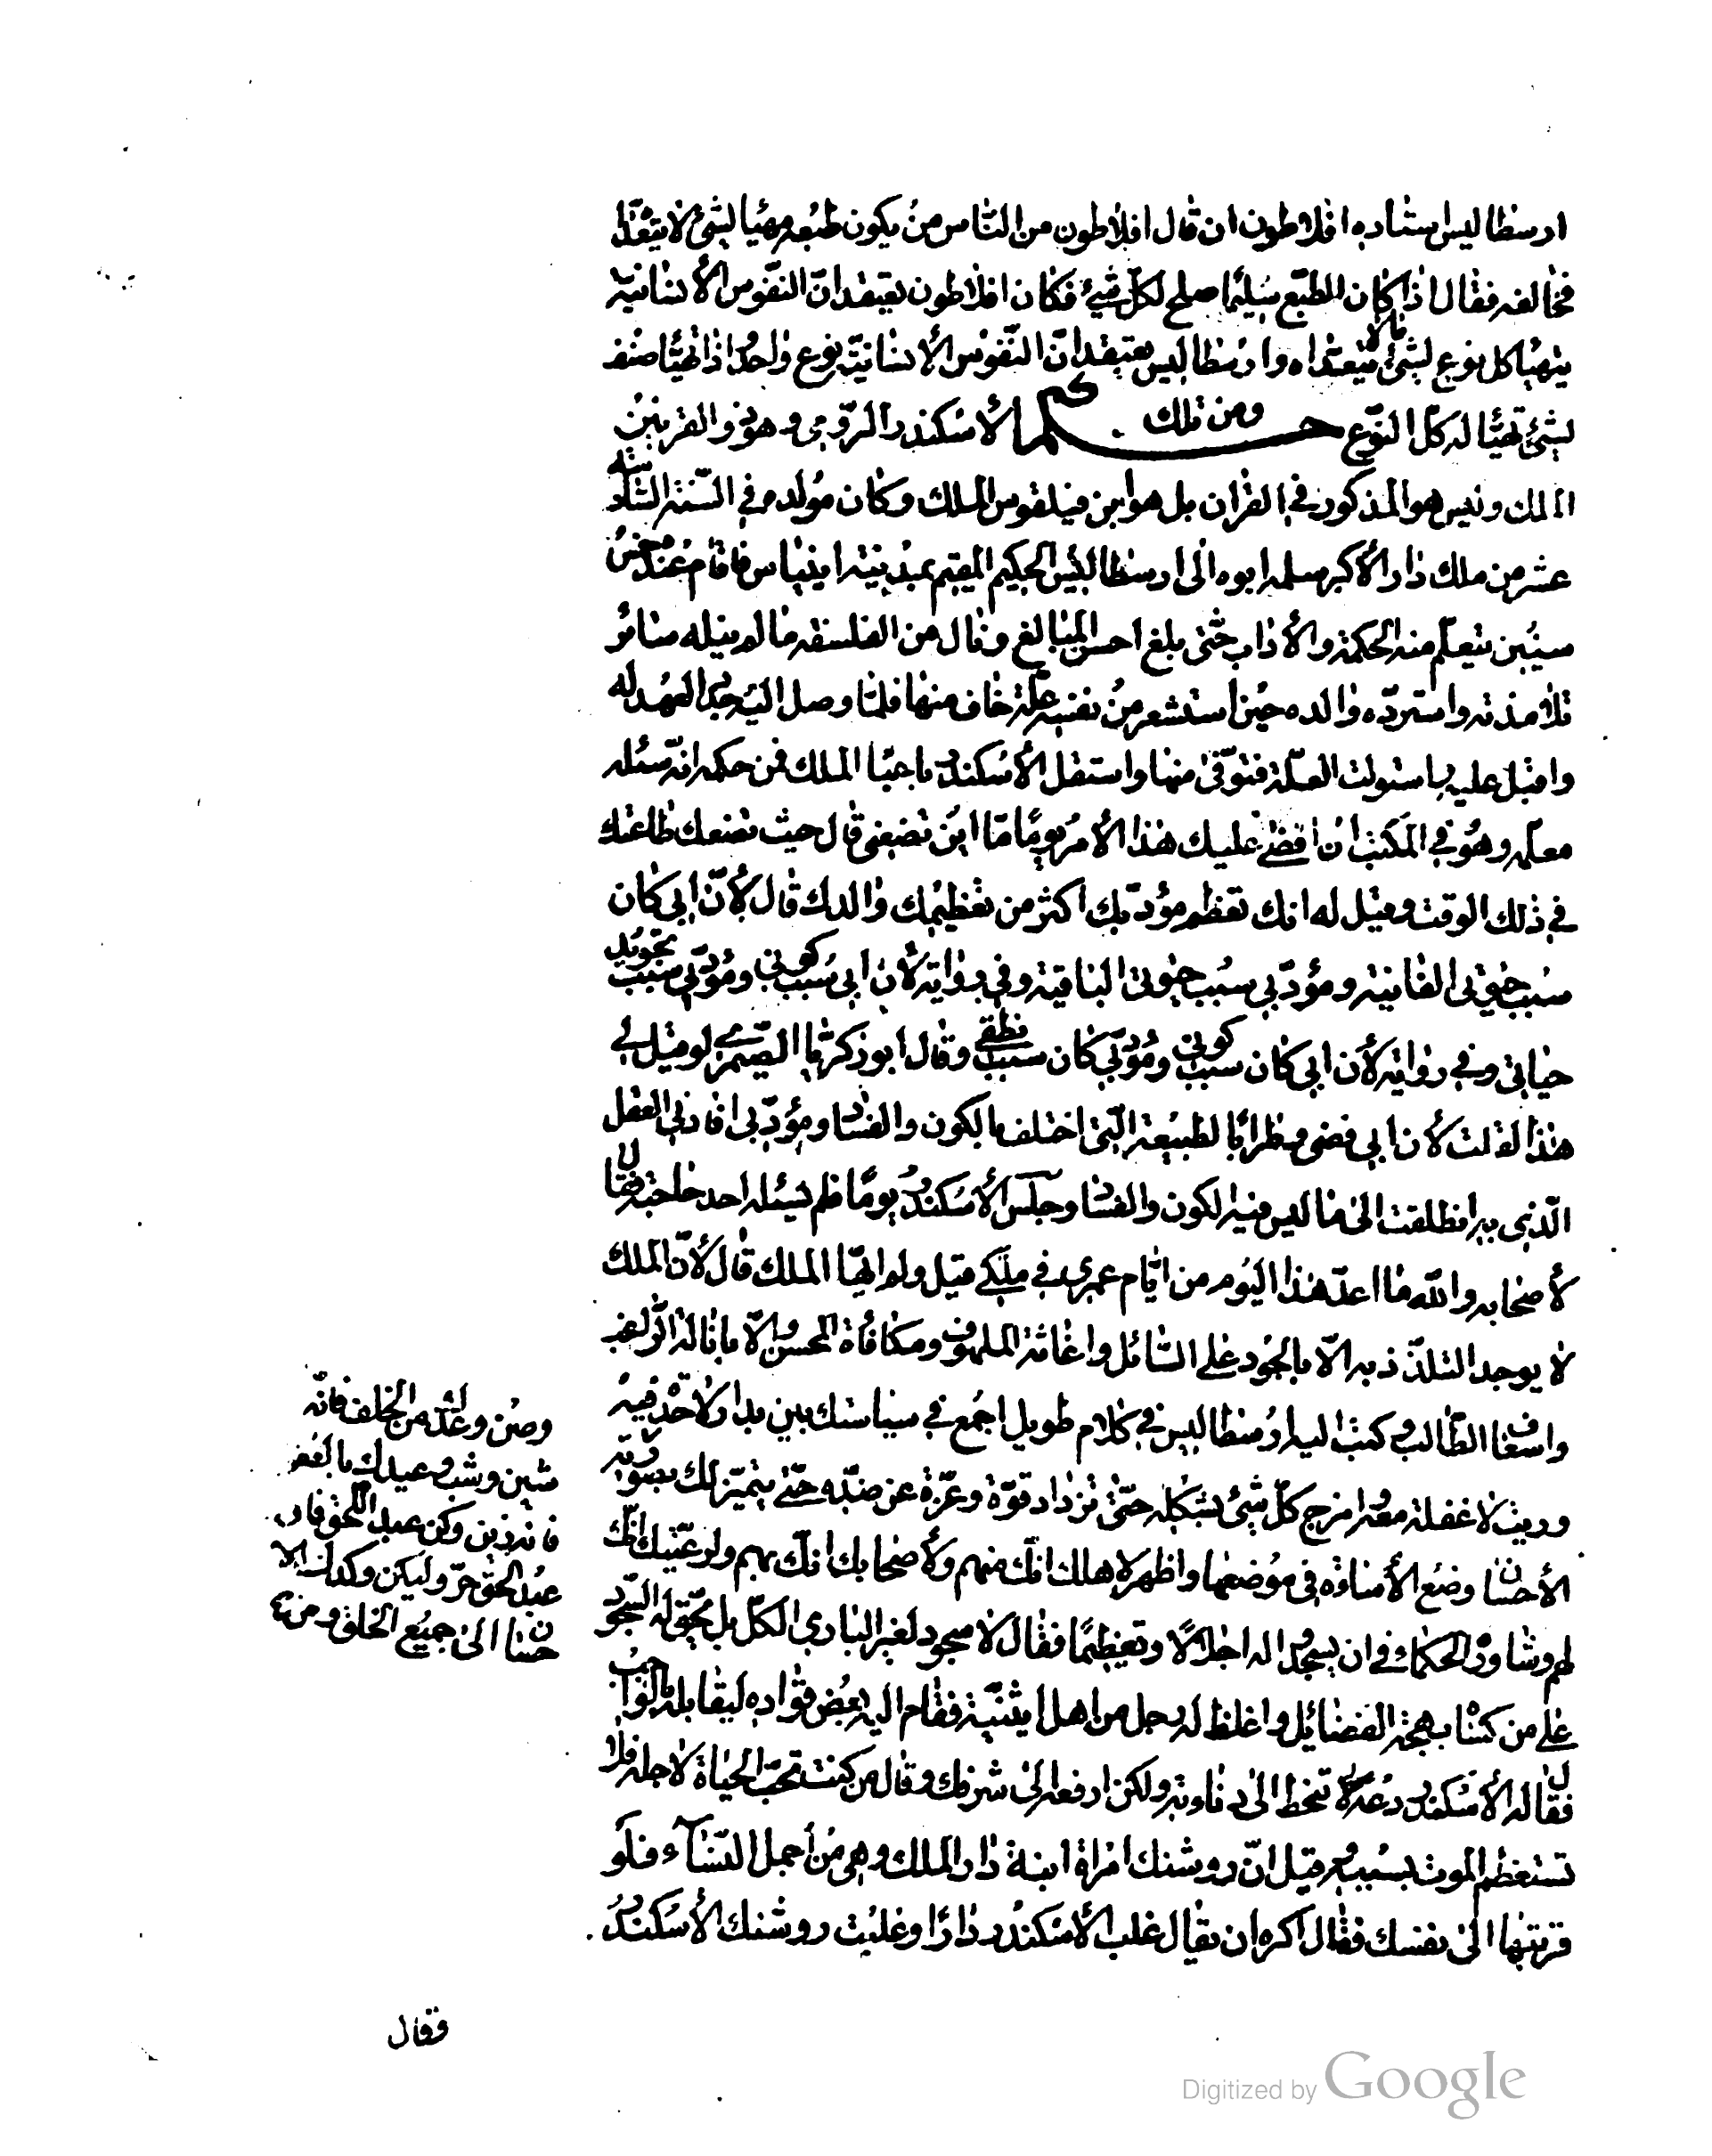 ارسطاليس استاده افلاطون ان قال افلاطون من الناس من يكون طبعه مهيا لشئ لا يتعداه
فخالفه فقال اذا كان الطبع سليما صلح لكل شئ فكان افلاطون يعتقد ان النفوس الأنسانية
يتهيا كل نوع لشئ ما لا يتعداه وارسطاليس يعتقد ان النفوس الأنسانية نوع واحد اذا تهيا صنف
لشئ تهيا له كل النوع ومن تلك حكم الأسكندر الرومى وهو ذو القرنين
الملك وليس هو المذكور فى القران بل هو ابن فيلقوس الملك وكان مولده فى السنة الثالثة
عشر من ملك دارا الأكبر سلمه ابوه الى ارسطاليس الحكيم المقيم بمدينة اينياس فاقام عنده خمس
سنين يتعلم منه الحكمة والأداب حتى بلغ احسن المبالغ ونال من الفلسفة ما لم ينله سائر
تلامذته واسترده والده حين استشعر من نفسه علة خاف منها فلما وصل اليه جدد العهد له
واقبل عليه واستولت العلة فتوفى منها واستقل الأسكندر باعبا الملك فمن حكمه انه سئله
معلمه وهو فى المكتب ان افضى عليك هذا الأمر يوما ما اين تضعنى قال حيث تضعك طاعتك
فى ذلك الوقت وقيل له انك تعظم مؤدبك اكثر من تعظيمك والدك قال لأن ابى كان
سبب حيوتى الفانية ومؤدبى سبب حيوتى الباقية وفى رواية لأن ابى سبب كونى ومؤدبى سبب تجويد
حياتى وفى رواية لأن ابى كان سبب كونى ومؤدبى كان سبب نطقى وقال ابو زكريا الصيمرى لو قيل لى
هذا لقلت لأن ابى قضى وطرا بالطبيعة التى اختلف بالكون والفساد ومؤدبى افادنى العقل
الذى به انطلقت الى ما ليس فيه الكون والفساد وجلس الأسكندر يوما فلم يسئله احد حاجة فقال
لأصحابه والله ما اعد هذا اليوم من ايام عمرى فى ملكى قيل ولم ايها الملك قال لأن الملك
لا يوجد التلذذ به الا بالجود على السائل واغاثة الملهوف ومكافاة المحسن والا بانالة الراغب
واسعاف الطالب وكتب اليه ارسطاليس فى كلام طويل اجمع فى سياستك بين بدار لا حدة فيه
وريث لا غفلة معه امزج كل شئ بشكله حتى تزداد قوة وعزة عن ضده حتى يتميز لك بصورته
وصن وعدك من الخلف فانه
شين وشب وعيدك بالعفو
فانه زين وكن عبد الحق فان
عبد الحق حر وليكن وكدك الا
حسان الى جميع الخلق ومن
الأحسان وضع الأساوة فى موضعها واظهر لاهلك انك منهم ولأصحابك انك بهم ولرعيتك انك
لهم وشاور الحكماء فى ان يسجدوا له اجلالا وتعظيما فقال لا سجود لغير البارى الكل بل يحق له السجود
على من كساه بهجة الفضائل واغلظ له رجل من اهل ايثنية فقام اليه بعض قواده ليقابله بالواجب
فقال له الأسكندر دعه لا تنحط الى دناءته ولكن ارفعه الى شرفك وقال من كنت تحب الحياة لاجله فلا
تستعظم الموت بسببه وقيل ان روشنك امراة ابنة دارا الملك وهى من اجمل النساء فلو
قربتها الى نفسك فقال اكره ان يقال غلب الأسكندر دارا وغلبت روشنك الأسكندر
فقال
Digitized by Google